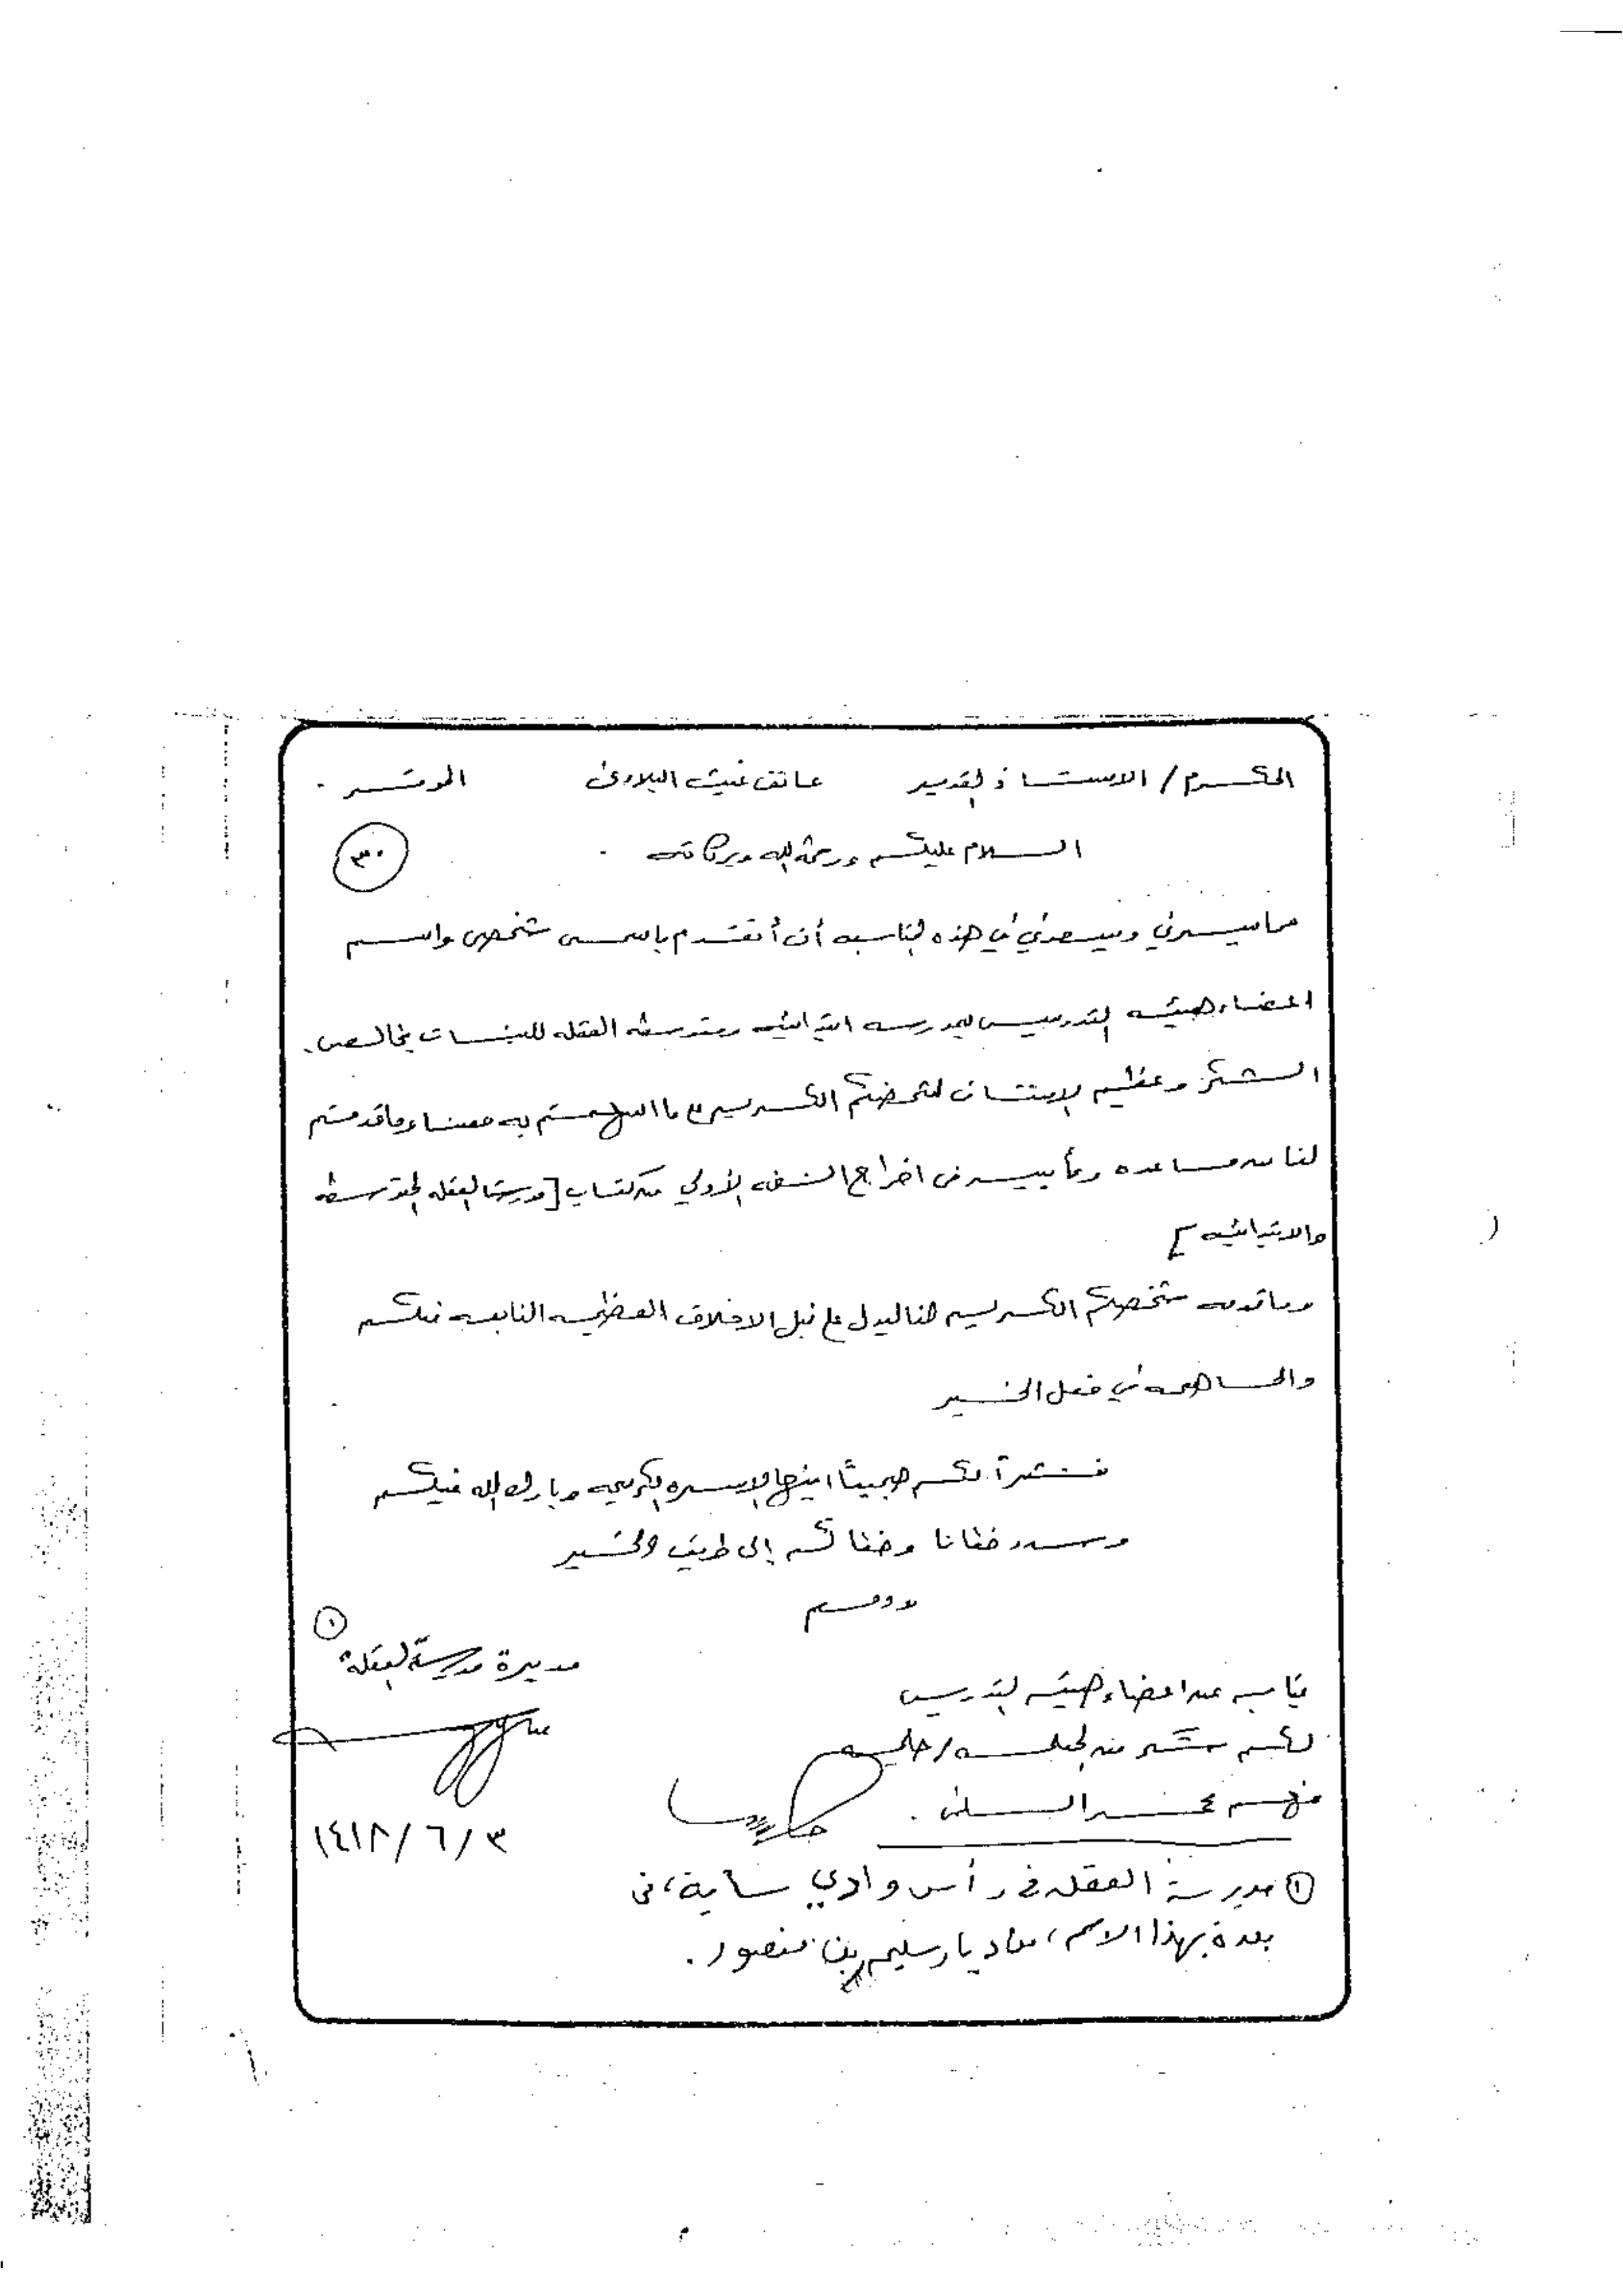 المكرم / الاستاذ القدير عاتق غيث البلادي الموقر .
السلام عليكم ورحمة الله وبركاته .
٣٠
مما يسرني ويسعدني في هذه المناسبه أن أتقدم باسمي شخصي واسم
اعضاء هيئه التدريس بمدرسه ابتدائيه ومتوسطه العقله للبنات بخالص
الشكر وعظيم الامتنان لشخصكم الكريم ما اسهمتم به معنا وما قدمتم
لنا من مساعده في اخراج النسخه الأولى من كتاب [مدرسة العقله المتوسطه
والابتدائيه]
وما قدمه شخصكم الكريم لنا ليدل على نبل الاخلاق العظيمه النابعه منكم
والمساهمه في فعل الخير
فشكراً لكم جميعاً ايتها الاسره الكريمه وبارك الله فيكم
وسدد خطانا وخطاكم إلى طريق الخير
ودمتم
مديرة مدرسة العقلة (١)
نيابه عن اعضاء هيئه التدريس
حليمه
السلمي .
١٤١٨/٦/٣
(١) مدرسة العقله في رأس وادي ساية، في
بلدة بهذا الاسم، من ديار سليم بن منصور .